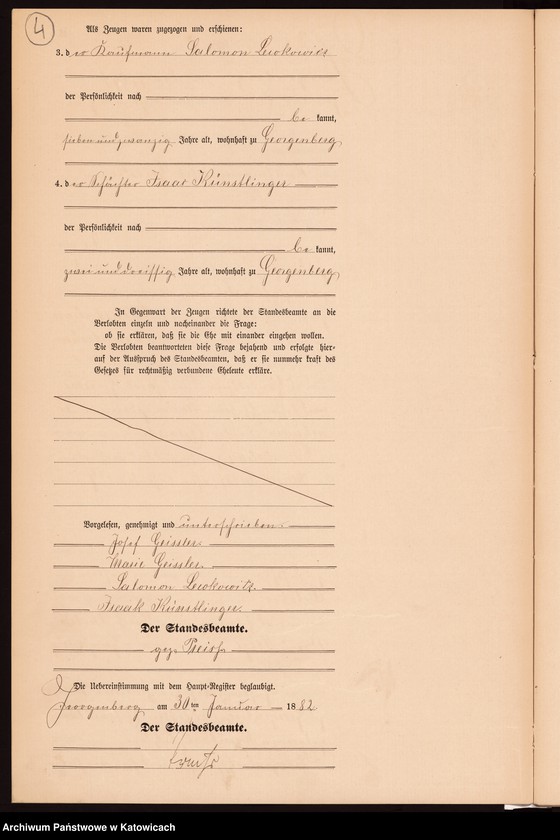 4
Als Zeugen waren zugezogen und erschienen:
3. der Kaufmann Salomon Lewkowitz
der Persönlichkeit nach
be kannt,
siebenundzwanzig Jahre alt, wohnhaft zu Georgenberg
4. der Schächter Isaac Künstlinger
der Persönlichkeit nach
be kannt,
zweiunddreissig Jahre alt, wohnhaft zu Georgenberg
In Gegenwart der Zeugen richtete der Standesbeamte an die
Verlobten einzeln und nacheinander die Frage:
ob sie erklären, daß sie die Ehe mit einander eingehen wollen.
Die Verlobten beantworteten diese Frage bejahend und erfolgte hier-
auf der Ausspruch des Standesbeamten, daß er sie nunmehr kraft des
Gesetzes für rechtmäßig verbundene Eheleute erkläre.
Vorgelesen, genehmigt und unterschrieben:
Josef Geissler.
Marie Geissler.
Salomon Lewkowitz.
Isaak Künstlinger.
Der Standesbeamte.
gez.
Die Uebereinstimmung mit dem Haupt-Register beglaubigt.
Georgenberg am 30ten Januar 1882
Der Standesbeamte.
Archiwum Państwowe w Katowicach